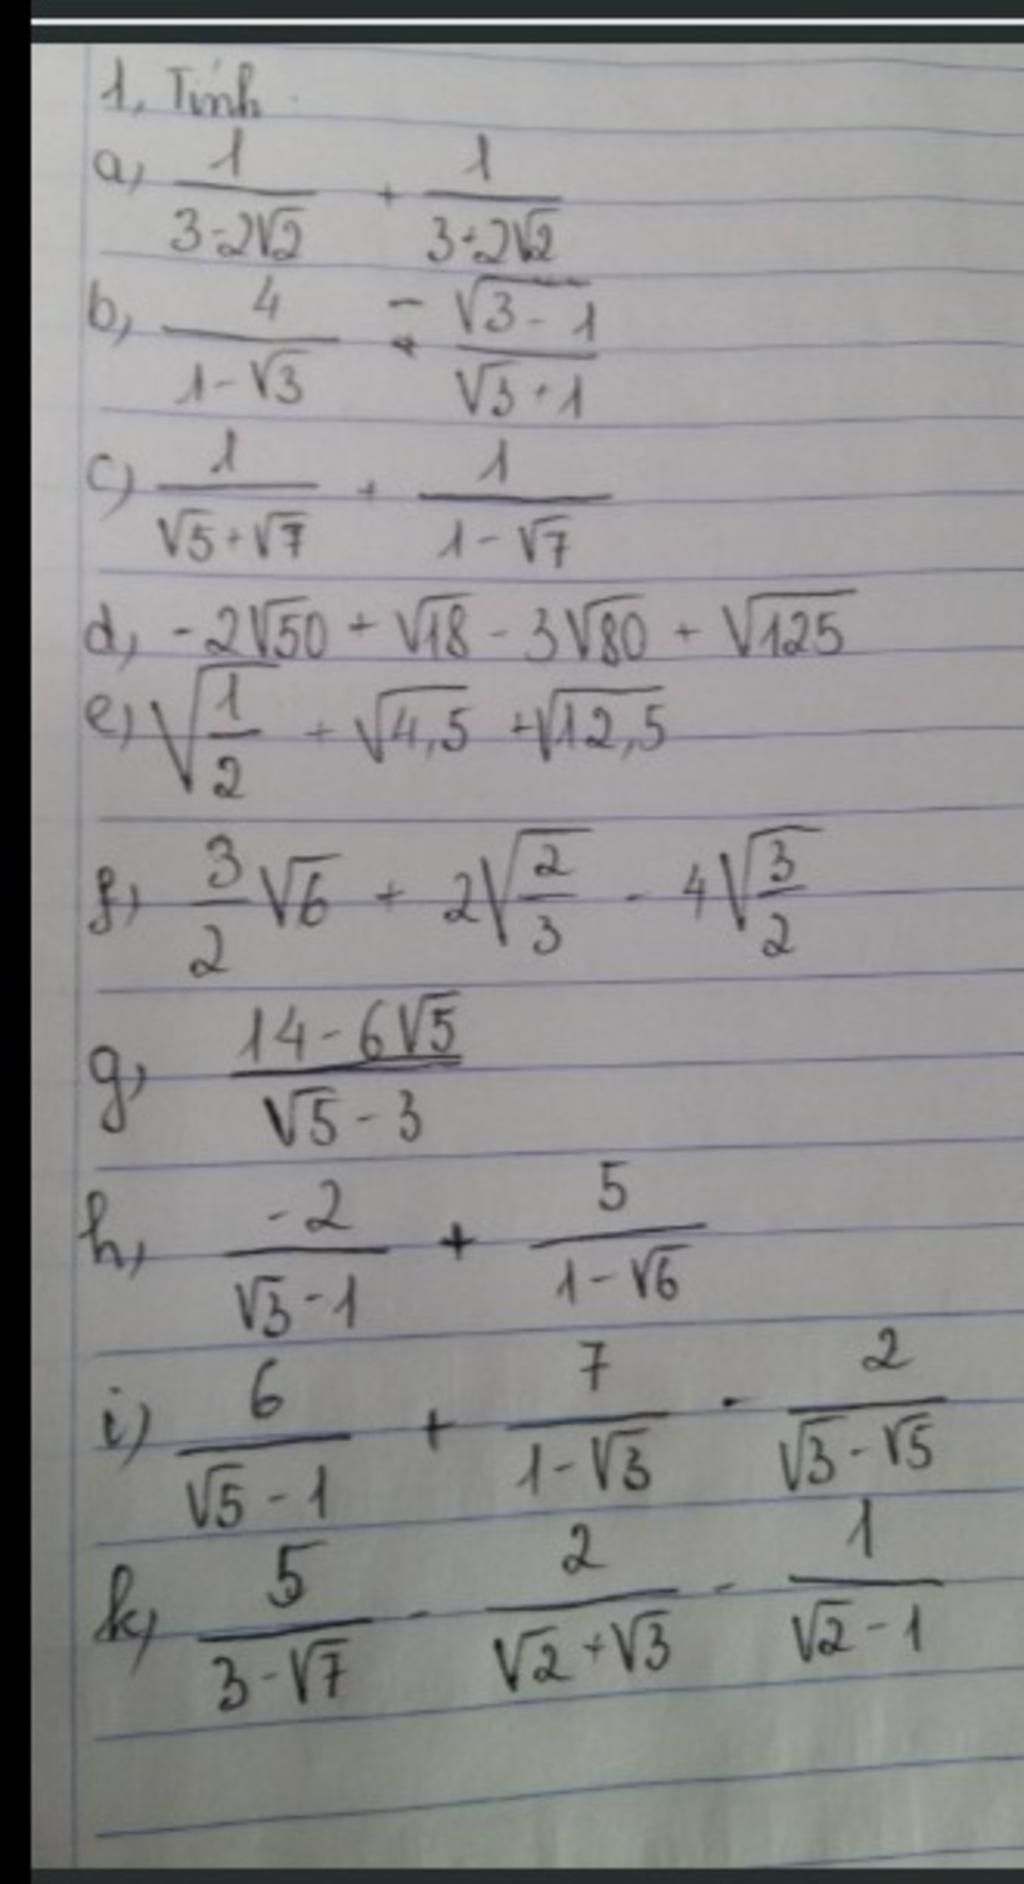 1, Tính
a, \frac{1}{3-2\sqrt{2}} + \frac{1}{3+2\sqrt{2}}
b, \frac{4}{1-\sqrt{3}} - \frac{\sqrt{3-1}}{\sqrt{3}+1}
c) \frac{1}{\sqrt{5}+\sqrt{7}} + \frac{1}{1-\sqrt{7}}
d, -2\sqrt{50} + \sqrt{18} - 3\sqrt{80} + \sqrt{125}
e) \sqrt{\frac{1}{2}} + \sqrt{4,5} + \sqrt{12,5}
f, \frac{3}{2}\sqrt{6} + 2\sqrt{\frac{2}{3}} - 4\sqrt{\frac{3}{2}}
g, \frac{14-6\sqrt{5}}{\sqrt{5}-3}
h, \frac{-2}{\sqrt{3}-1} + \frac{5}{1-\sqrt{6}}
i) \frac{6}{\sqrt{5}-1} + \frac{7}{1-\sqrt{3}} - \frac{2}{\sqrt{3}-\sqrt{5}}
k, \frac{5}{3-\sqrt{7}} - \frac{2}{\sqrt{2}+\sqrt{3}} - \frac{1}{\sqrt{2}-1}